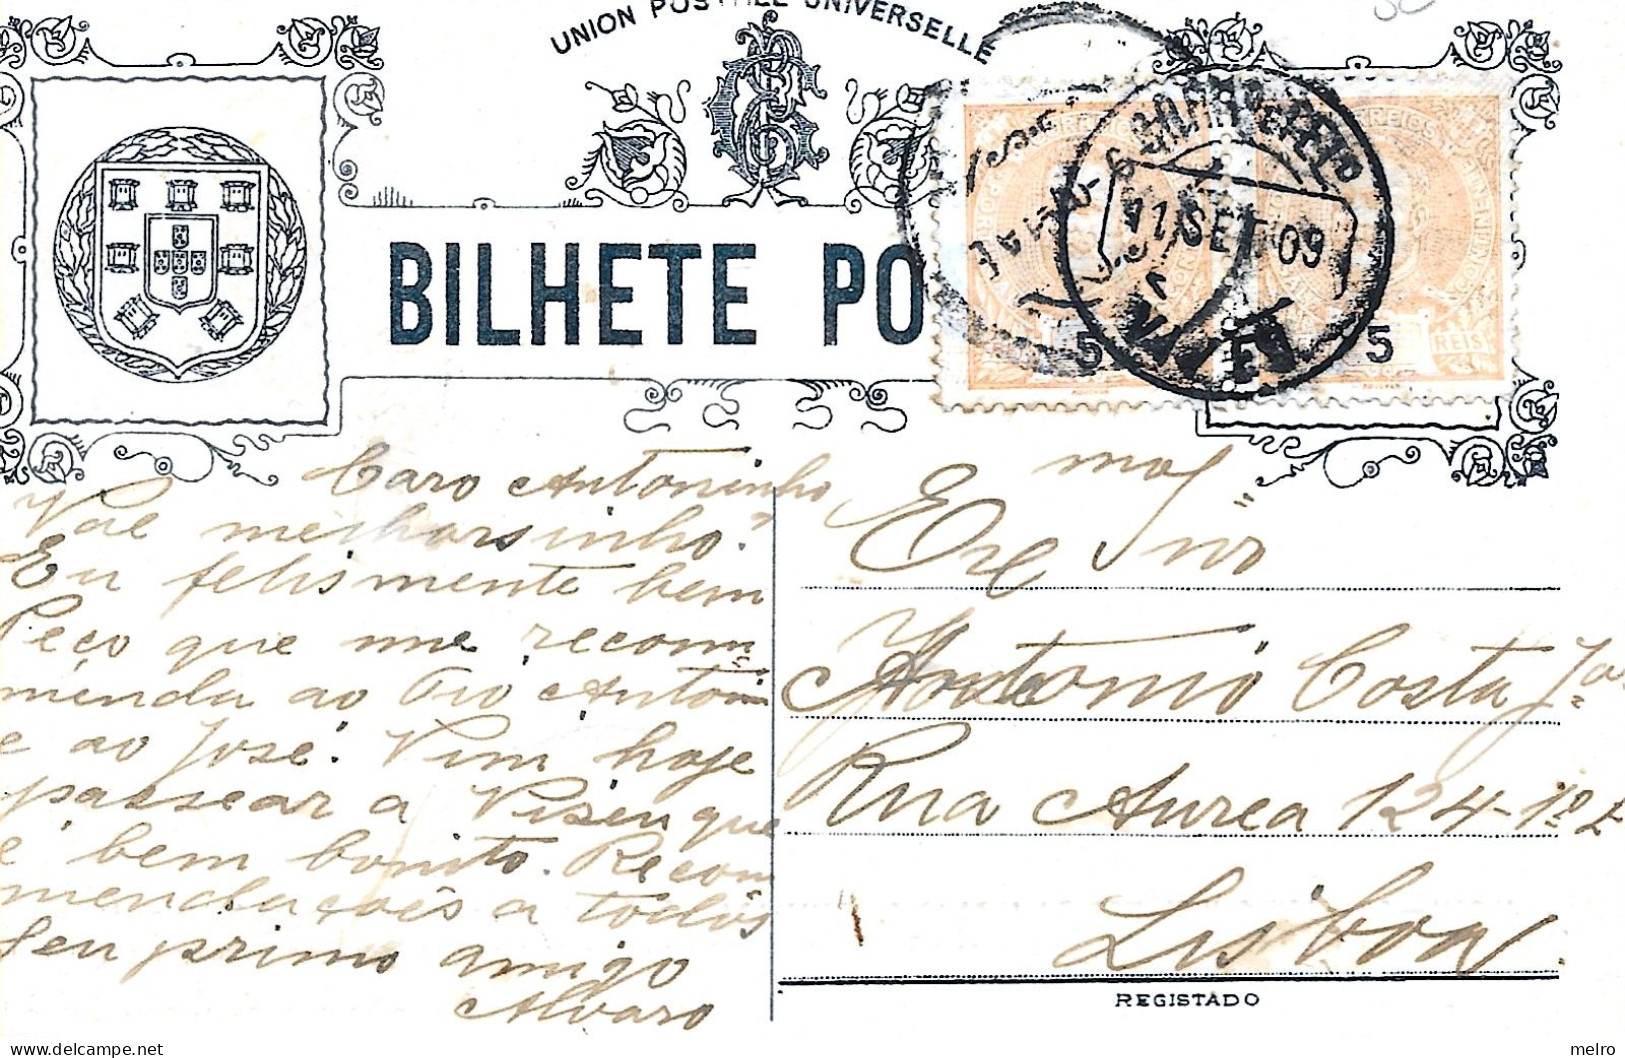 UNION POSTALE UNIVERSELLE
BILHETE PO
CORREIOS
5
5 REIS
11 SET 09
Caro Antoninho
Vae melhorsinho?
Eu felismente bem
Peço que me recom=
menda ao Tio Antonio
e ao José. Vim hoje
passear a Viseu que
é bem bonito. Recom
mendações a todos
Seu primo amigo
Alvaro
Exmo Snr
Antonio Costa Jor
Rua Aurea 124-1º E
Lisboa
REGISTADO
delcampe.net
melro